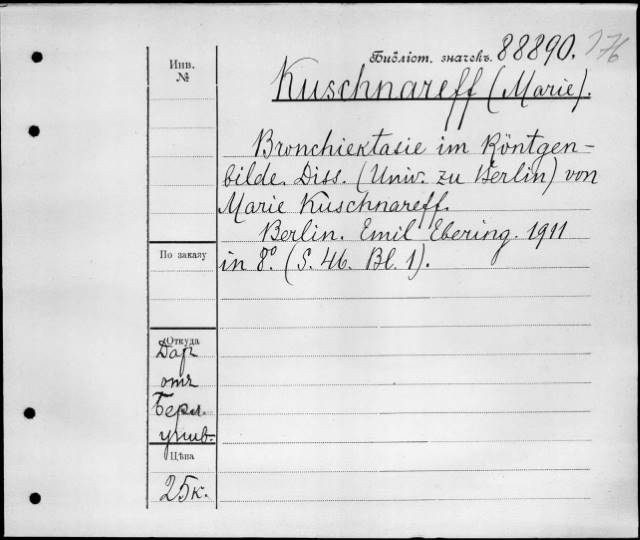 Инв.
№
Библіот. значекъ. 88890. 176
Kuschnareff (Marie).
Bronchiektasie im Röntgen-
bilde. Diss. (Univ. zu Berlin) von
Marie Kuschnareff.
Berlin. Emil Ebering. 1911
in 8º. (S. 46. Bl. 1).
По заказу
Откуда
Дар
отъ
Берл.
унив.
Цѣна
25к.